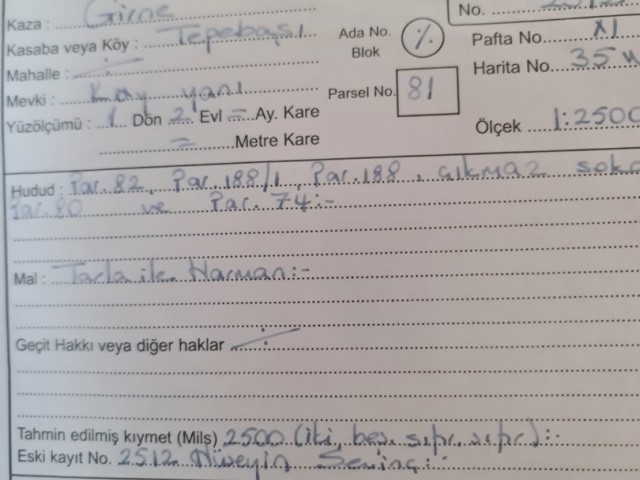 No.
Kaza : Girne
Kasaba veya Köy : Tepebaşı
Ada No. Blok ./.
Pafta No. XI
Mahalle : ./.
Harita No. 35 W
Mevki : Köy yanı
Parsel No. 81
Yüzölçümü : 1 Dön 2 Evl = Ay. Kare
Ölçek 1:2500
= Metre Kare
Hudud : Par. 82, Par 188/1, Par. 188, çıkmaz soka
Par. 80 ve Par. 74:-
Mal : Tarla ile Harman:-
Geçit Hakkı veya diğer haklar ./.
Tahmin edilmiş kıymet (Mils) 2500 (iki, beş, sıfır, sıfır):-
Eski kayıt No. 2512 Hüseyin Sevinç:-